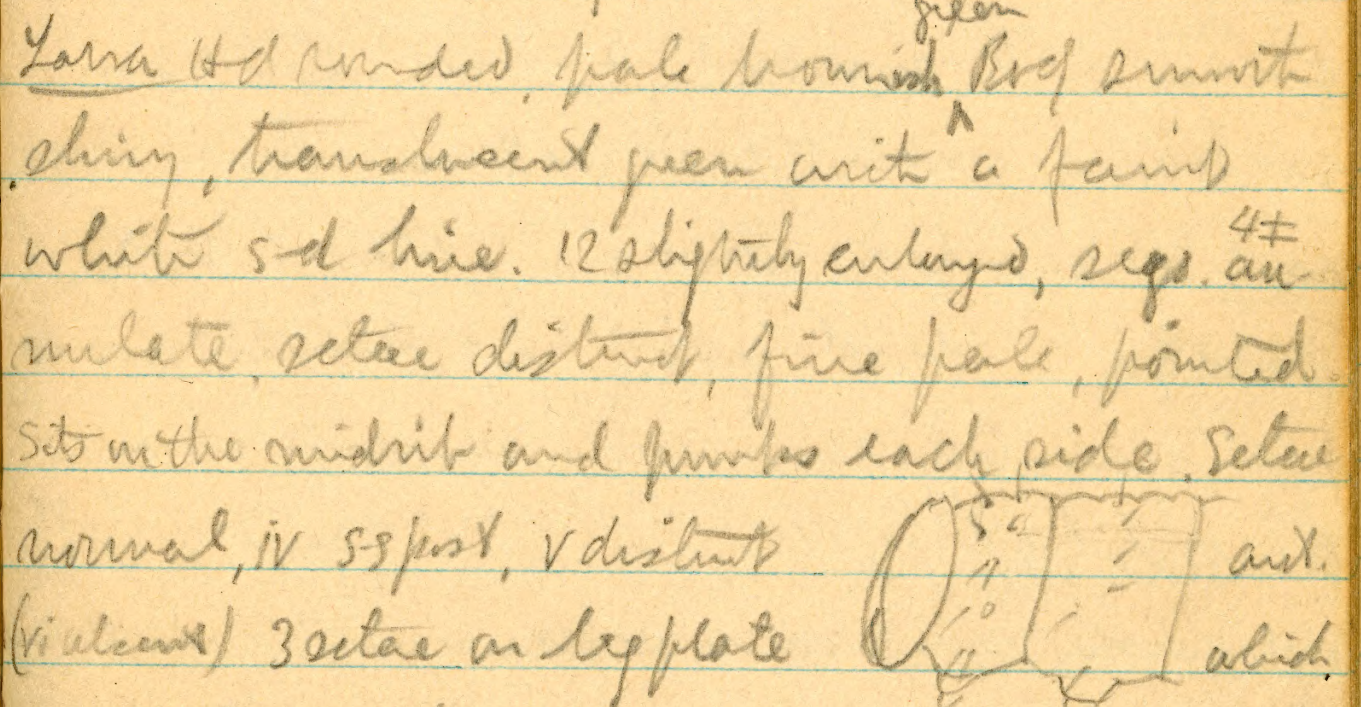 green
Larva Hd rounded, pale brownish Body smooth
shiny, translucent green with a faint
white s-d line. 12 slightly enlarged, segs. 4± an-
nulate, setae distinct, fine pale, pointed.
Sits on the midrib and each side. Setae
normal, iv s-s post, v distinct ant.
(vi absent) 3 setae on leg plate which